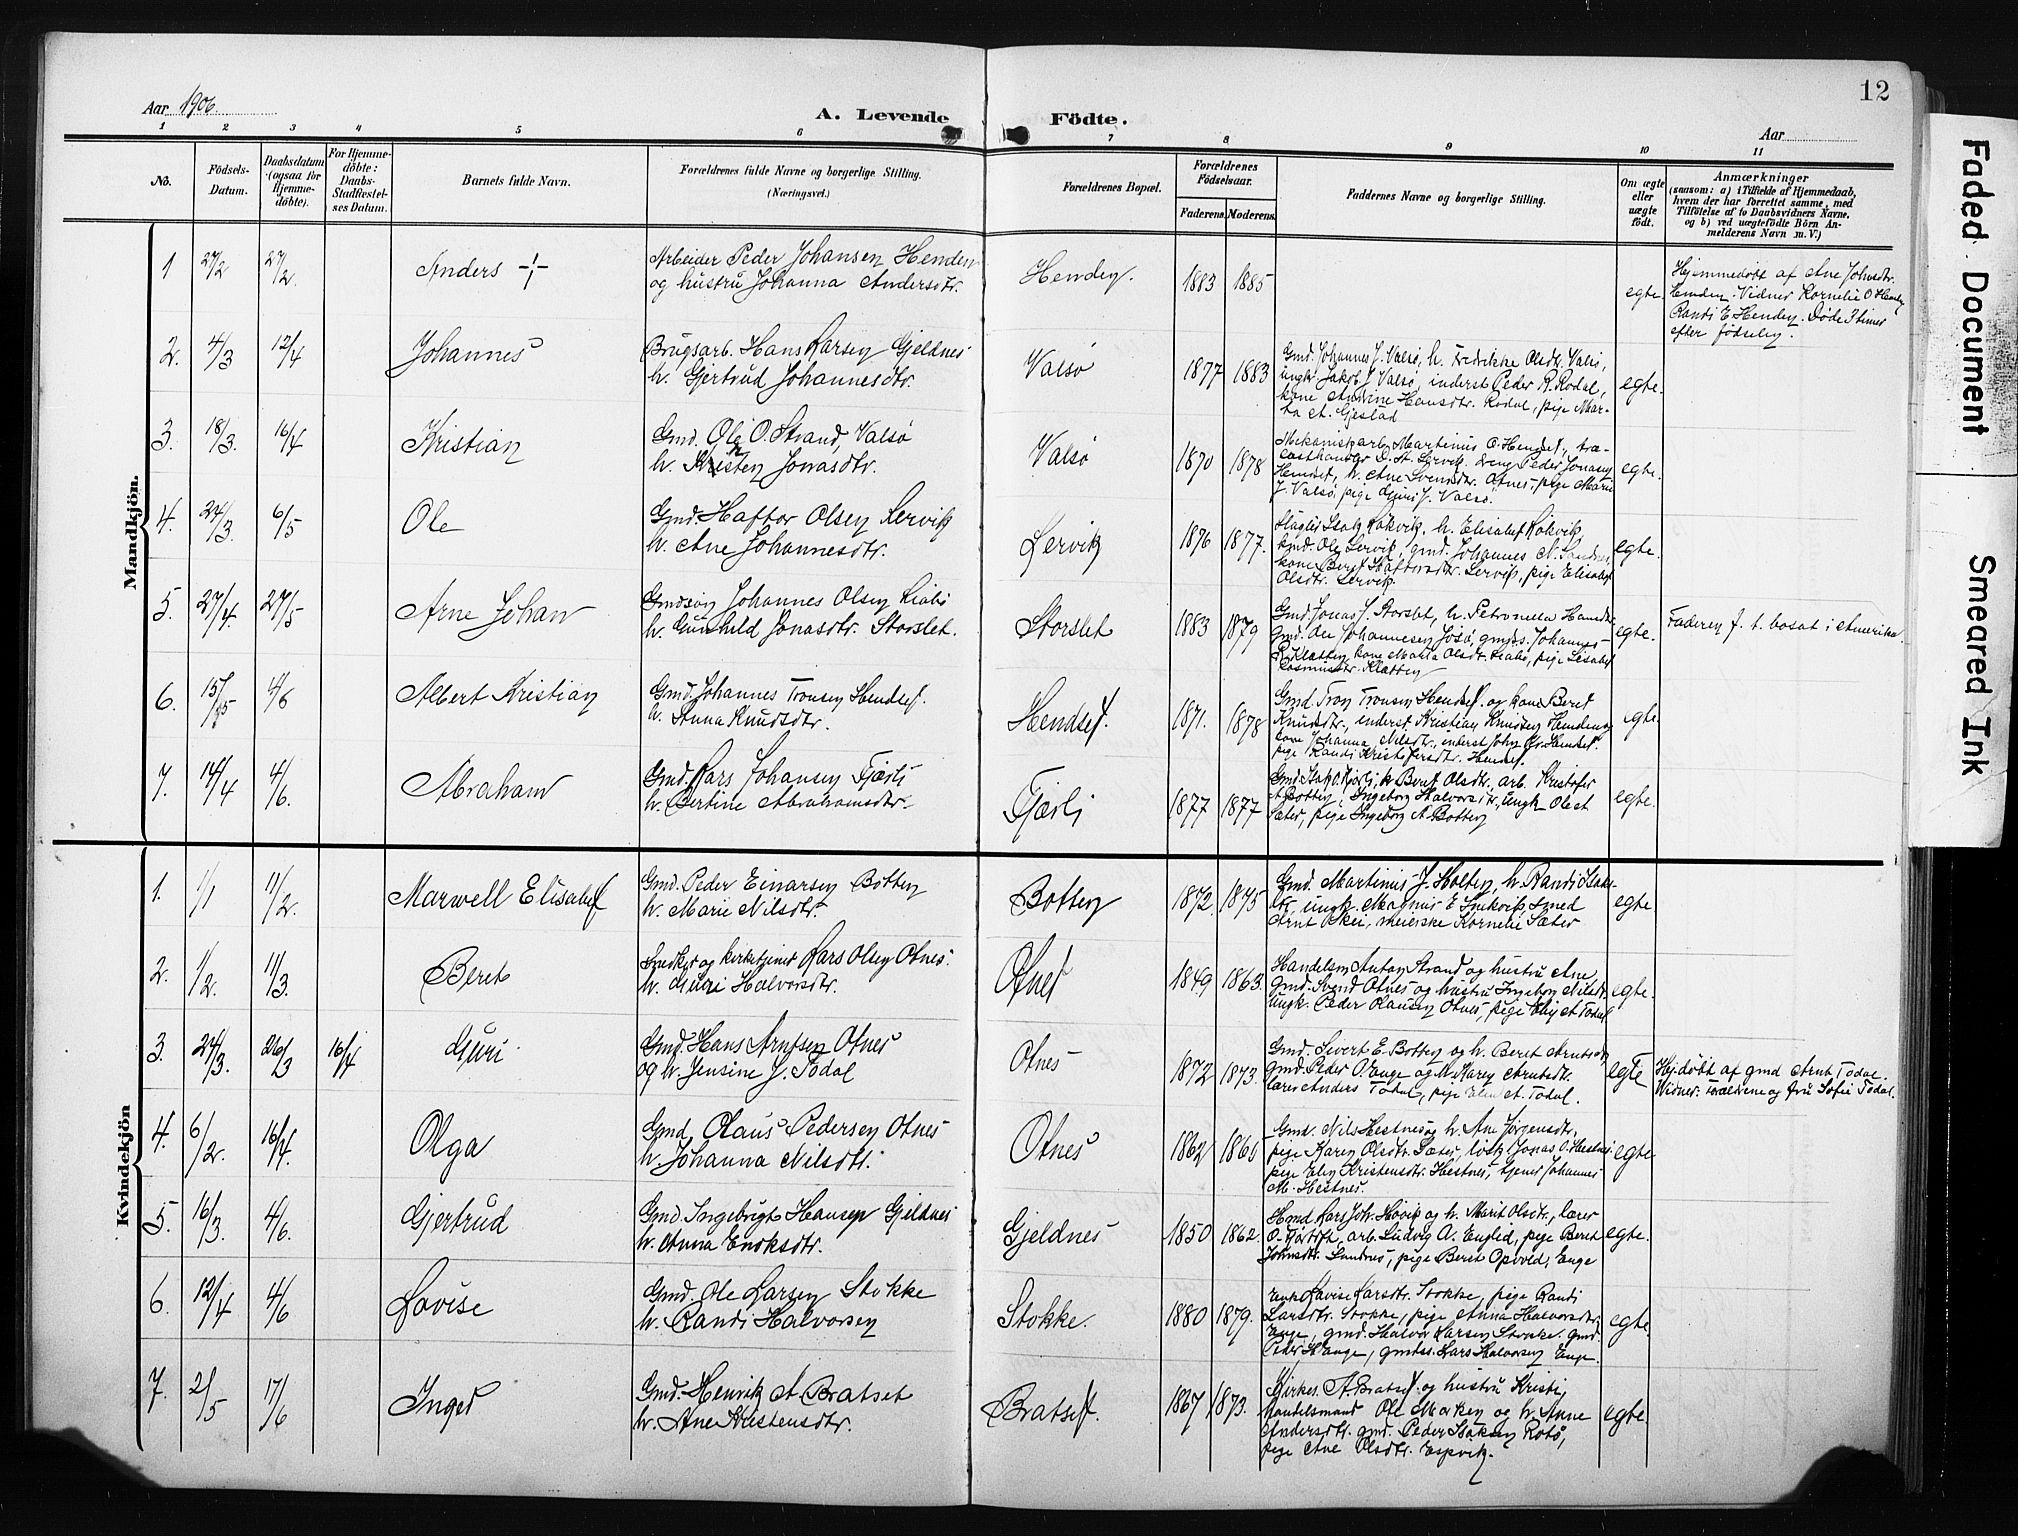 12
Aar 1906.
A. Levende Födte.
Aar
1 2 3 4 5 6 7 8 9 10 11
No.
Födsels-
Datum.
Daabsdatum
(ogsaa för
Hjemme-
döbte).
For Hjemme-
döbte:
Daabs-
Stadfæstel-
ses Datum.
Barnets fulde Navn.
Forældrenes fulde Navne og borgerlige Stilling.
(Næringsvei.)
Forældrenes Bopæl.
Forældrenes
Födselsaar.
Faderens. Moderens.
Faddernes Navne og borgerlige Stilling.
Om ægte
eller
uægte
födt.
Anmærkninger
(saasom: a) i Tilfælde af Hjemmedaab,
hvem der har forrettet samme, med
Tilföielse af to Daabsvidners Navne,
og b) ved uægtefödte Börn An-
melderens Navn m. V.)
Mandkjön.
1 27/2 27/2. Anders
Arbeider Peder Johansen Henden
og hustru Johanna Andersdtr.
Henden. 1883 1885
egte
Hjemmedöbt af Ane Johnsdtr.
Henden. Vidner Kornelie O Henden
Randi E Henden. Döde 3 timer
efter födselen.
2. 4/3 12/4 Johannes
Brugsarb. Hans Larsen Gjeldnes
h. Gjertrud Johannesdtr.
Valsö 1877 1883
Gmd. Johannes J. Valsö, h. Fredrikke Olsdtr. Valsö,
ungk. Jakob J Valsö, inderst Peder R. Rodal,
kone Andrine Hansdtr. Rodal, pige Mar-
ta A. Gjeslad
egte.
3. 18/3. 16/4 Kristian
Gmd. Ole O. Strand, Valsö
h. Kristen Jonasdtr.
Valsö 1870 1878
Mekanikarb. Martinus O. Hendset, træ-
lasthandler D. St. Lervik. dreng Peder Jonasen
Hendset, h. Ane Svendsdtr. Otnes, pige Marie
J. Valsö, pige Guri J. Valsö.
egte.
4. 24/3. 6/5 Ole
Gmd. Haftor Olsen Lervik
h. Ane Johannesdtr.
Lervik 1876 1877.
Isak Rökvik, h. Elisabet Rökvik,
gmd. Ole Lervik, gmd. Johannes N. Sandnes,
kone Beret Haftorsdtr. Lervik, pige Elisabet
Olsdtr. Lervik.
egte.
5. 27/4. 27/5 Arne Johan
Gmdsön Johannes Olsen Liabö
h. Gunhild Jonasdtr. Storslet.
Storslet 1883 1879
Gmd. Jonas J. Storslet, h. Petronella
Gmd. Ole Johannesen Josö, gmds. Johannes
R. Kletten, kone Marta Olsdtr. Liabö, pige Lisabet
Rasmusdtr. Kletten
egte.
Faderen f. t. bosat i Amerika.
6. 15/5 4/6 Albert Kristian
Gmd. Johannes Tronsen Hendset.
h. Anna Knudsdtr.
Hendset. 1871. 1878
Gmd. Tron Tronsen Hendset. og kone Beret
Knudsdtr., inderst Kristian Knudsen Henden og
kone Johanna Nilsdtr., inderst John Hendset.
pige Randi Kristofersdtr. Hendset.
egte.
7. 14/4 4/6. Abraham
Gmd. Lars Johansen Fjærli
h. Bertine Abrahamsdtr.
Fjærli 1877 1877
Gmd. Isak O. Fjærli, h. Beret Olsdtr., arb. Kristofer
A Botten, Ingeborg Halvorsdtr., ungk. Ole A
Sæter, pige Ingeborg A Botten
egte.
Kvindekjön
1. 1/1 11/2. Marwell Elisabet
Gmd. Peder Einarsen Botten
h. Marie Nilsdtr.
Botten 1872. 1875
Gmd. Martinus J. Holten, h. Randi Isaks-
dtr, ungk. Magnus E Snekvik, smed
Arnt Skei, meierske Kornelie Sæter
egte.
2. 1/2. 11/3. Beret
og kirketjener Lars Olsen Otnes.
h. Guri Halvorsdtr.
Otnes 1849 1863.
Handelsm. Anton Strand og hustru Ane
Gmd. Svend Otnes og hustru Ingeborg Nilsdtr.
Ungk. Peder Klausen Otnes, pige Elen A. Todal
egte.
3. 24/3. 26/3 16/4 Guri
Gmd. Hans Arntsen Otnes
og h. Jensine J. Todal
Otnes 1872 1873.
Gmd. Sivert E. Botten og h. Beret Arntsdtr,
gmd. Peder O Enge og h. Karen Arntsdtr.
lærer Anders Todal, pige Elen A. Todal.
egte
Hj.döbt af gmd Arnt Todal.
Vidner: Forældrene og fru Sofie Todal.
4. 6/2. 16/4. Olga
Gmd. Olaus Pedersen Otnes
h. Johanna Nilsdtr.
Otnes 1862 1866
Gmd. Nils Hestnes og h. Ane Jörgensdtr,
pige Karen Olsdtr. Sæter, Jonas O. Hestnes
pige Elen Kristensdtr. Hestnes, tjener Johannes
M. Hestnes.
egte
5. 16/3 4/6. Gjertrud
Gmd. Ingebrigt Hansen Gjeldnes
h. Anna Eriksdtr.
Gjeldnes 1850 1862.
Gmd. Lars Joh. Hövik og h. Marit Olsdtr., lærer
O. Fjörtoft, arb. Ludvig A. Englid, pige Beret
Johnsdtr. Sandnes, pige Beret Opvold, Enge
egte.
6. 12/4 4/6 Lovise
Gmd. Ole Larsen Stokke
h. Randi Halvorsen
Stokke. 1880 1879.
Enke Lavise Larsdtr. Stokke, pige Randi
Larsdtr. Stokke, pige Anna Halvorsdtr.
Enge, gmd. Halvor Larsen Stokke. gmd.
Peder H Enge, gmdss. Lars Halvorsen Enge.
egte.
7. 2/5 17/6 Inger
Gmd. Henrik A. Bratset
h. Ane Kristensdtr.
Bratset. 1867 1873.
Kirkes. A. Bratset. og hustru Kristi,
Handelsmand Ole Morken og h. Anne
Andersdtr. gmd. Peder Isaksen Rotö,
pige Ane Olsdtr. Espvik.
egte.
Faded Document
Smeared Ink